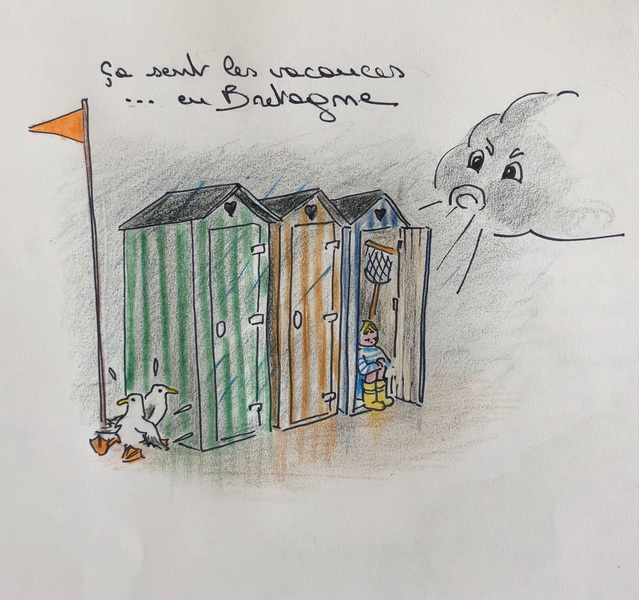 ça sent les vacances
... en Bretagne